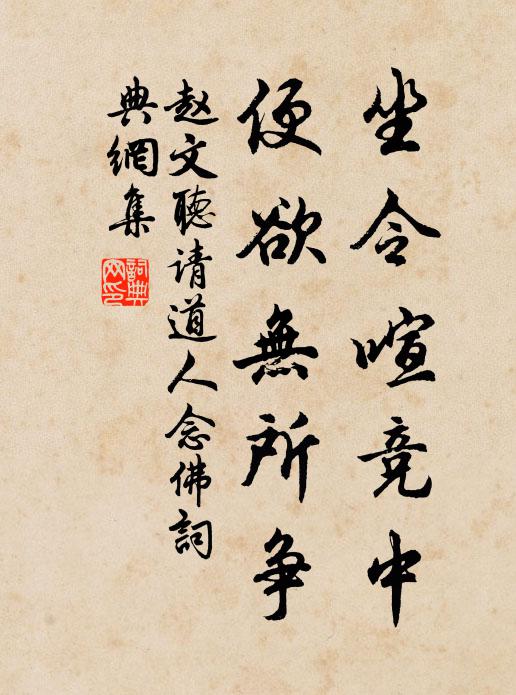 坐令喧竞中
便欲無所争
赵文聽请道人念佛詞
典網集
詞典网印